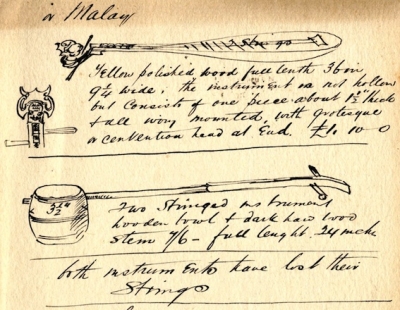 in Malay
Strings
Yellow polished wood full lenth 36 in
9 1/4 wide, the instrument is not hollow
but Consists of one piece about 1 1/2" thick
& all wory mounted, with grotesque
or convention head at End. £1. 10 0
3 1/4
3 1/2
Two Stringed instrument
wooden bowl & dark hard wood
Stem 7/6 - full lenght. 24 inch
both instruments have lost their
Strings